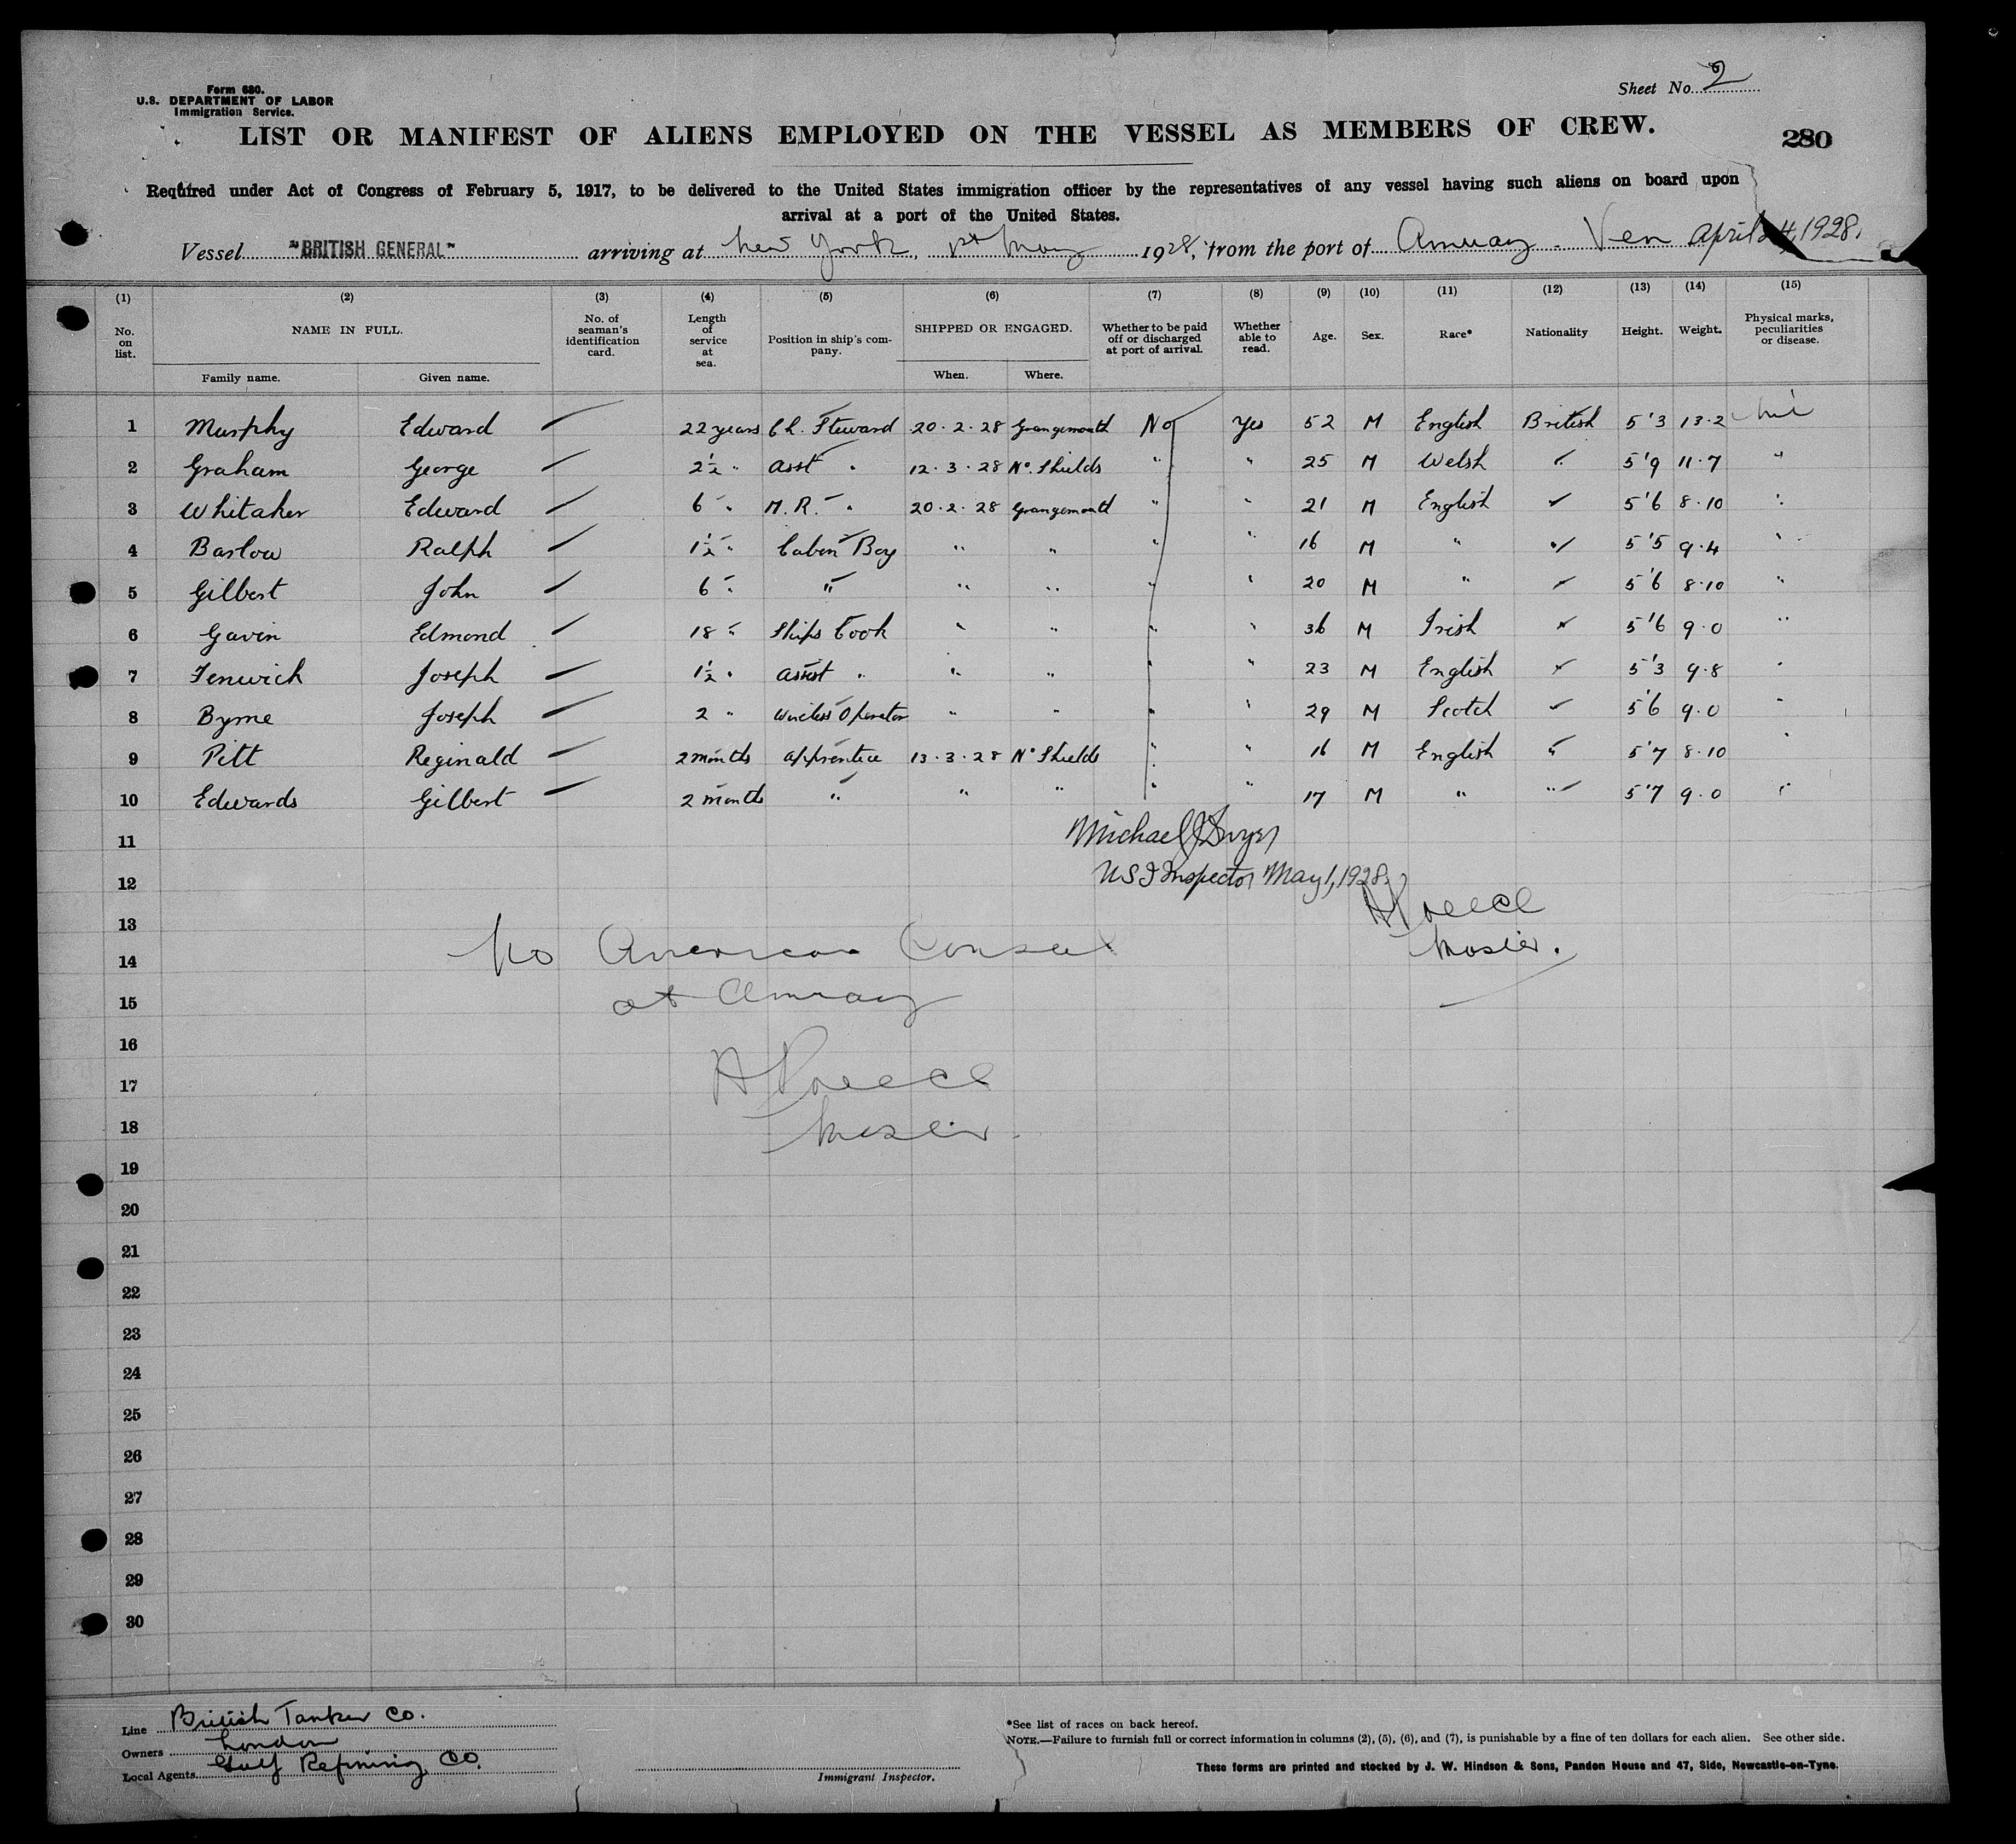 Form 680.
U.S. DEPARTMENT OF LABOR
Immigration Service.
Sheet No. 2
LIST OR MANIFEST OF ALIENS EMPLOYED ON THE VESSEL AS MEMBERS OF CREW.
280
Required under Act of Congress of February 5, 1917, to be delivered to the United States immigration officer by the representatives of any vessel having such aliens on board upon
arrival at a port of the United States.
Vessel "BRITISH GENERAL" arriving at New York, 1st May 1928, from the port of Amuay. Ven April 24, 1928.
(1) (2) (3) (4) (5) (6) (7) (8) (9) (10) (11) (12) (13) (14) (15)
No. on list. NAME IN FULL. No. of seaman's identification card. Length of service at sea. Position in ship's company. SHIPPED OR ENGAGED. Whether to be paid off or discharged at port of arrival. Whether able to read. Age. Sex. Race* Nationality Height. Weight. Physical marks, peculiarities or disease.
Family name. Given name. When. Where.
1 Murphy Edward 22 years Ch. Steward 20.2.28 Grangemouth No Yes 52 M English British 5'3 13.2 Nil
2 Graham George 2½ " Asst " 12.3.28 No. Shields " " 25 M Welsh " 5'9 11.7 "
3 Whitaker Edward 6 " M.R. " 20.2.28 Grangemouth " " 21 M English " 5'6 8.10 "
4 Barlow Ralph 1½ " Cabin Boy " " " " 16 M " " 5'5 9.4 "
5 Gilbert John 6 " " " " " " 20 M " " 5'6 8.10 "
6 Gavin Edmond 18 " Ships Cook " " " " 36 M Irish " 5'6 9.0 "
7 Fenwick Joseph 1½ " Assist " " " " " 23 M English " 5'3 9.8 "
8 Byrne Joseph 2 " Wireless Operator " " " " 29 M Scotch " 5'6 9.0 "
9 Pitt Reginald 2 months Apprentice 13.3.28 No Shields " " 16 M English " 5'7 8.10 "
10 Edwards Gilbert 2 months " " " " " 17 M " " 5'7 9.0 "
11 Michael J Dwyer
12 USI Inspector May 1, 1928.
13
Master.
14 No American Consul
15 at Amuay
16
17
18 Master.
19
20
21
22
23
24
25
26
27
28
29
30
Line British Tanker Co.
Owners London
Local Agents Gulf Refining Co.
Immigrant Inspector.
*See list of races on back hereof.
NOTE.—Failure to furnish full or correct information in columns (2), (5), (6), and (7), is punishable by a fine of ten dollars for each alien. See other side.
These forms are printed and stocked by J. W. Hindson & Sons, Pandon House and 47, Side, Newcastle-on-Tyne.